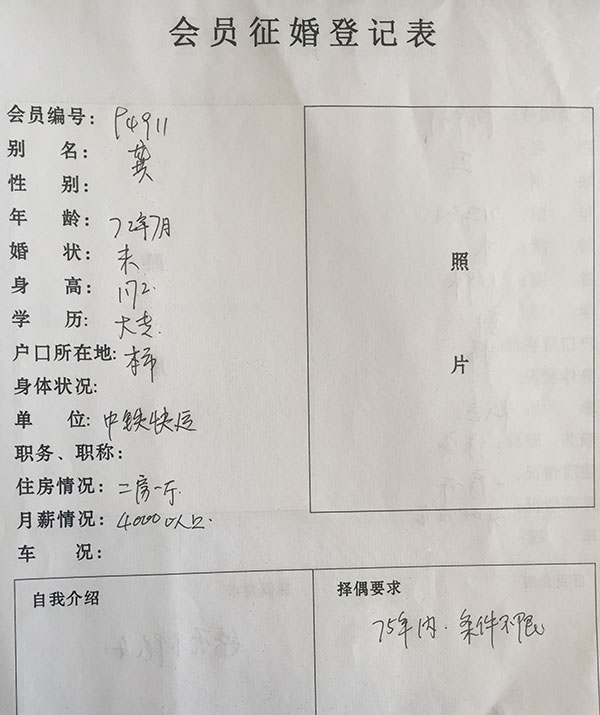 会员征婚登记表
会员编号：P4911
别 名：龚
性 别：
年 龄：72年7月
婚 状：未
身 高：172.
学 历：大专.
户口所在地：本市
身体状况：
单 位：中铁快运
职务、职称：
住房情况：二房一厅.
月薪情况：4000以上.
车 况：
照
片
自我介绍
择偶要求
75年内.条件不限